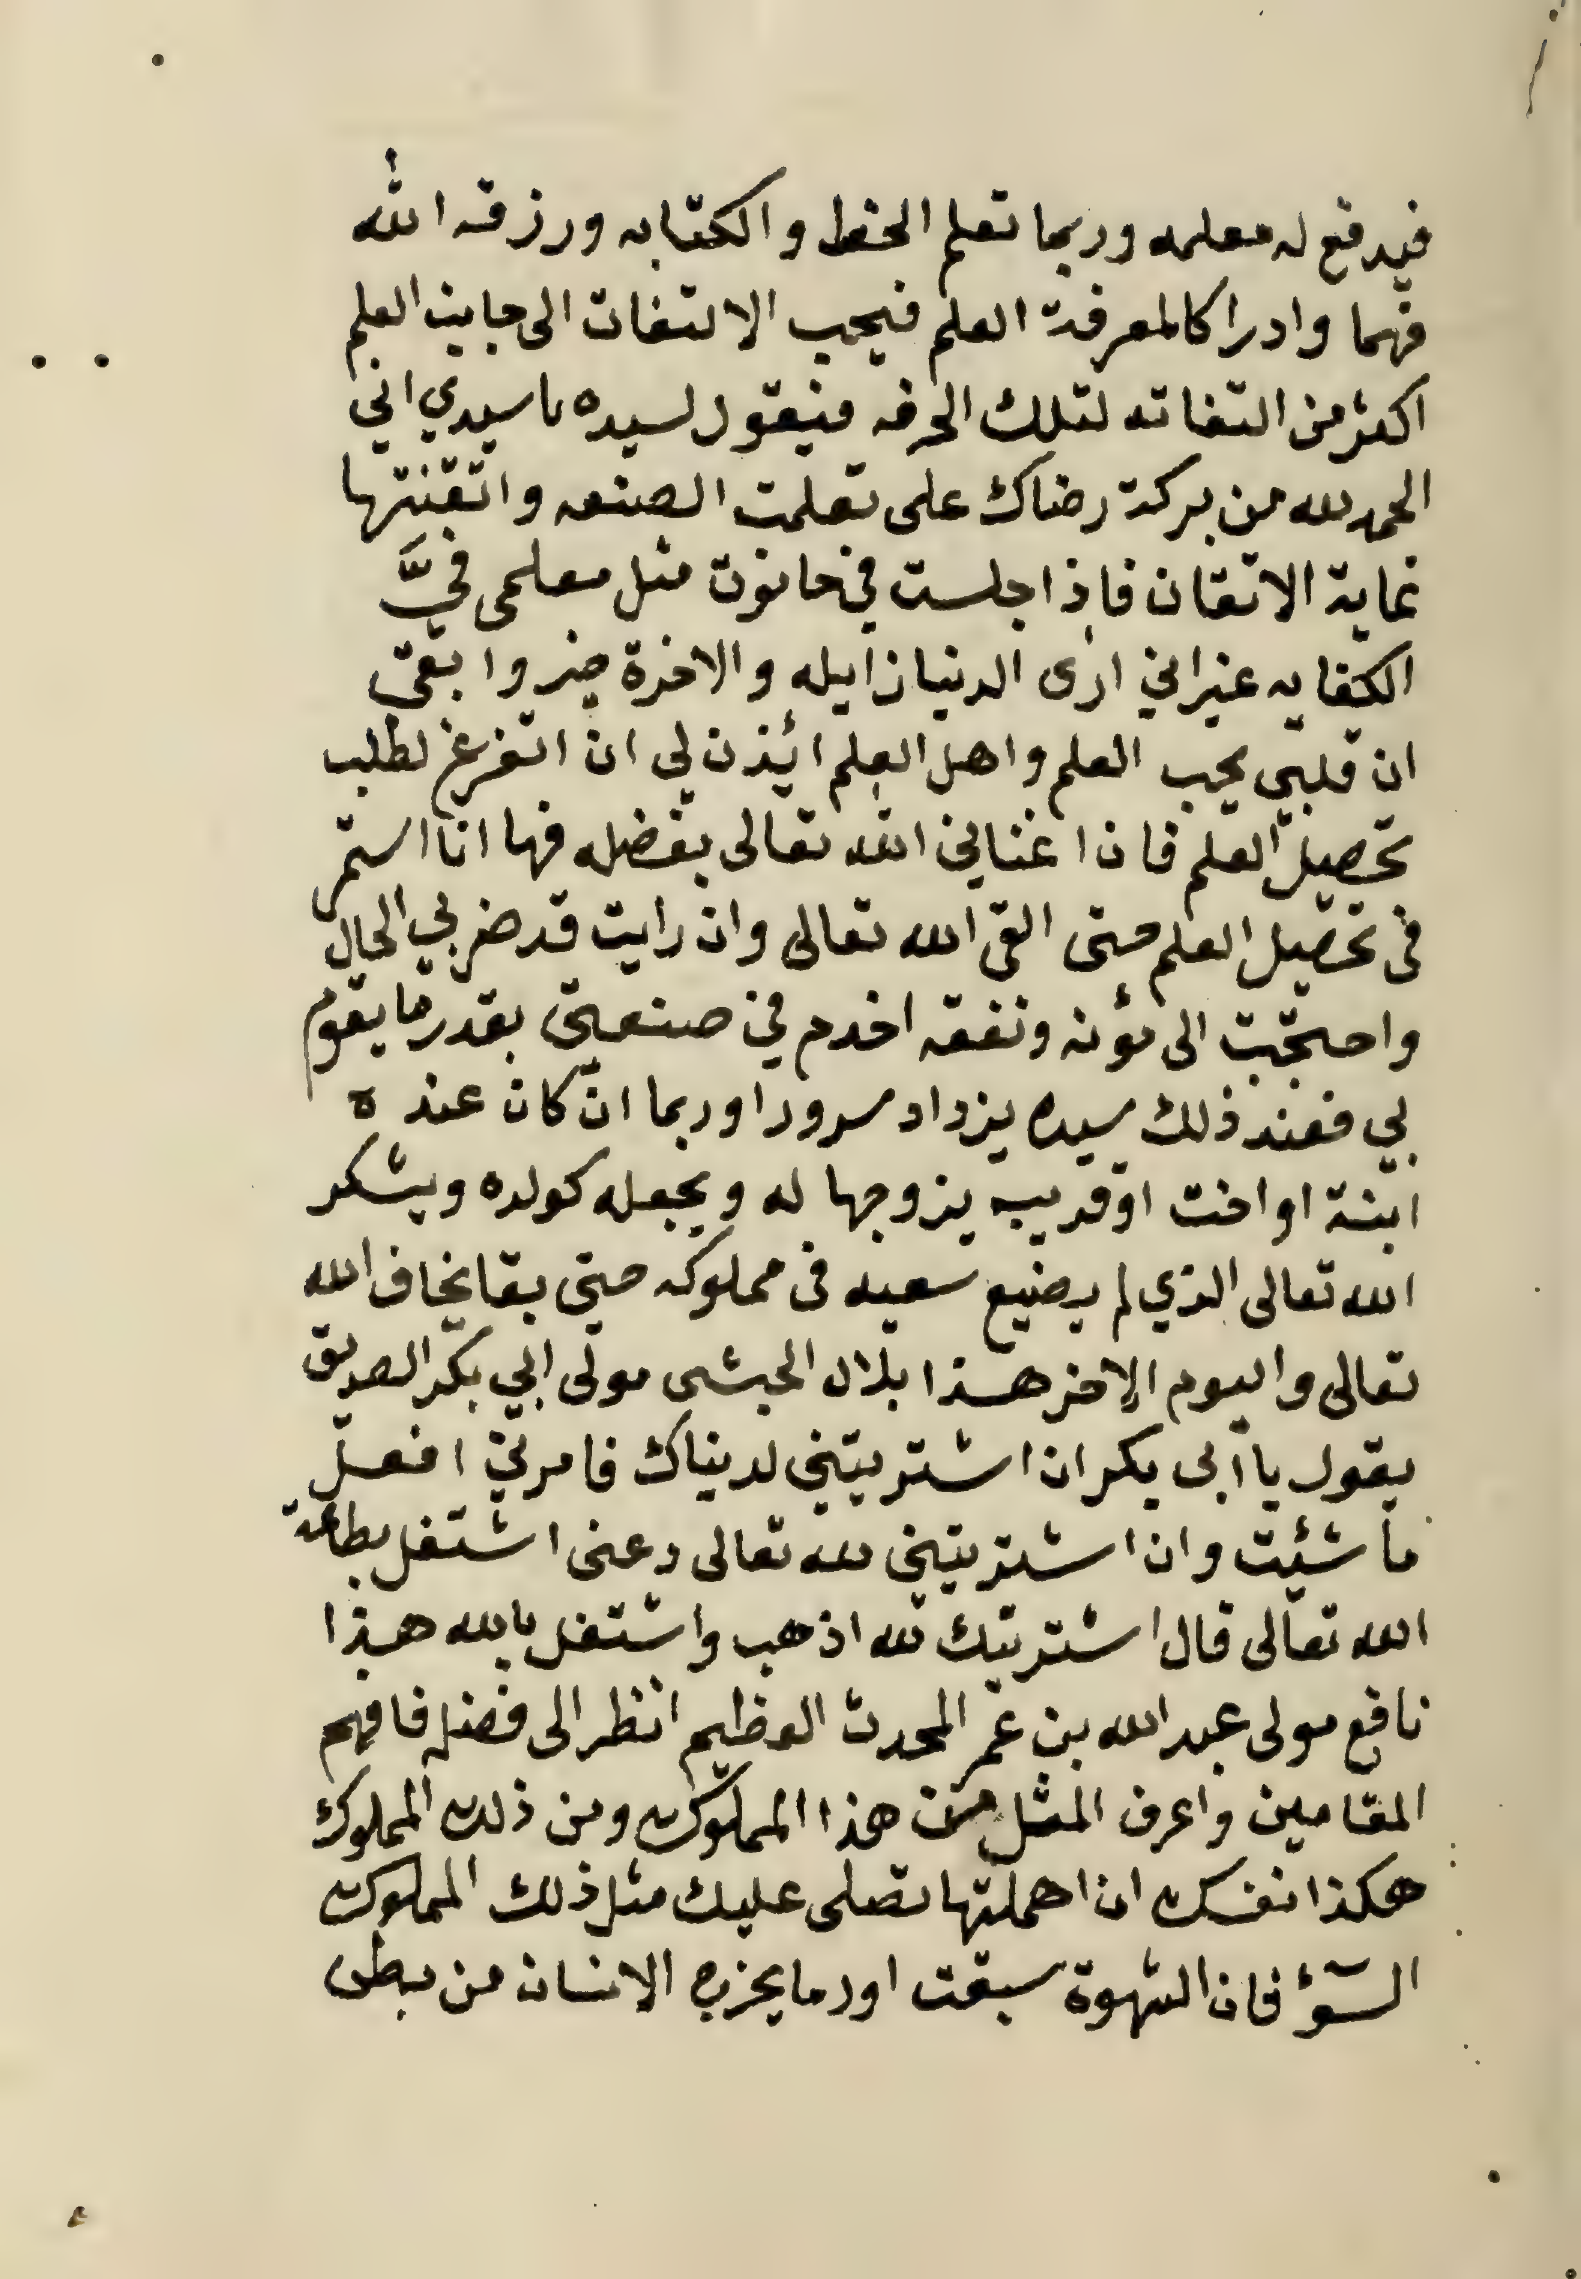 فيدفع له معلمه وربما تعلم الخط والكتابه ورزقه الله
فهما وادراكا لمعرفة العلم فيجب الالتفات الى جانب العلم
اكثر من التفاته لتلك الحرفه فيقول لسيده ياسيدي اني
الحمد لله من بركة رضاك على تعلمت الصنعه واتقنتها
غاية الاتقان فاذا جلست في حانوت مثل معلمى فيَّ
الكفايه غيراني ارى الدنيا زايله والاخرة خير وابقى
ان قلبي يحب العلم واهل العلم ائذن لي ان اتفرغ لطلب
تحصيل العلم فان اغناني الله تعالى بفضله فها انا استمر
فى تحصيل العلم حتى القى الله تعالى وان رايت قد ضر بي الحال
واحتجت الى مؤنه ونفقه اخدم في صنعتي بقدر ما يقوم
بي فعند ذلك سيده يزداد سرورا وربما ان كان عنده
ابنة او اخت او قريبه يزوجها له ويجعله كولده ويشكر
الله تعالى الذي لم يضيع سعيه فى مملوكه حتى بقا يخاف الله
تعالى واليوم الاخر هذا بلال الحبشى مولى ابي بكر الصديق
يقول يا ابى بكر ان اشتريتني لدنياك فامرني افعل
ما شئت وان اشتريتني لله تعالى دعنى اشتغل بطاعة
الله تعالى قال اشتريتك لله اذهب واشتغل بالله هذا
نافع مولى عبد الله بن عمر المحدث العظيم انظر الى فضله فافهم
المقامين واعرف المثل من هذا المملوك ومن ذلك المملوك
هكذا نفسك ان اهملتها تصلى عليك مثل ذلك المملوك
السؤ فان الشهوة سبقت اور ما يخرج الانسان من بطن